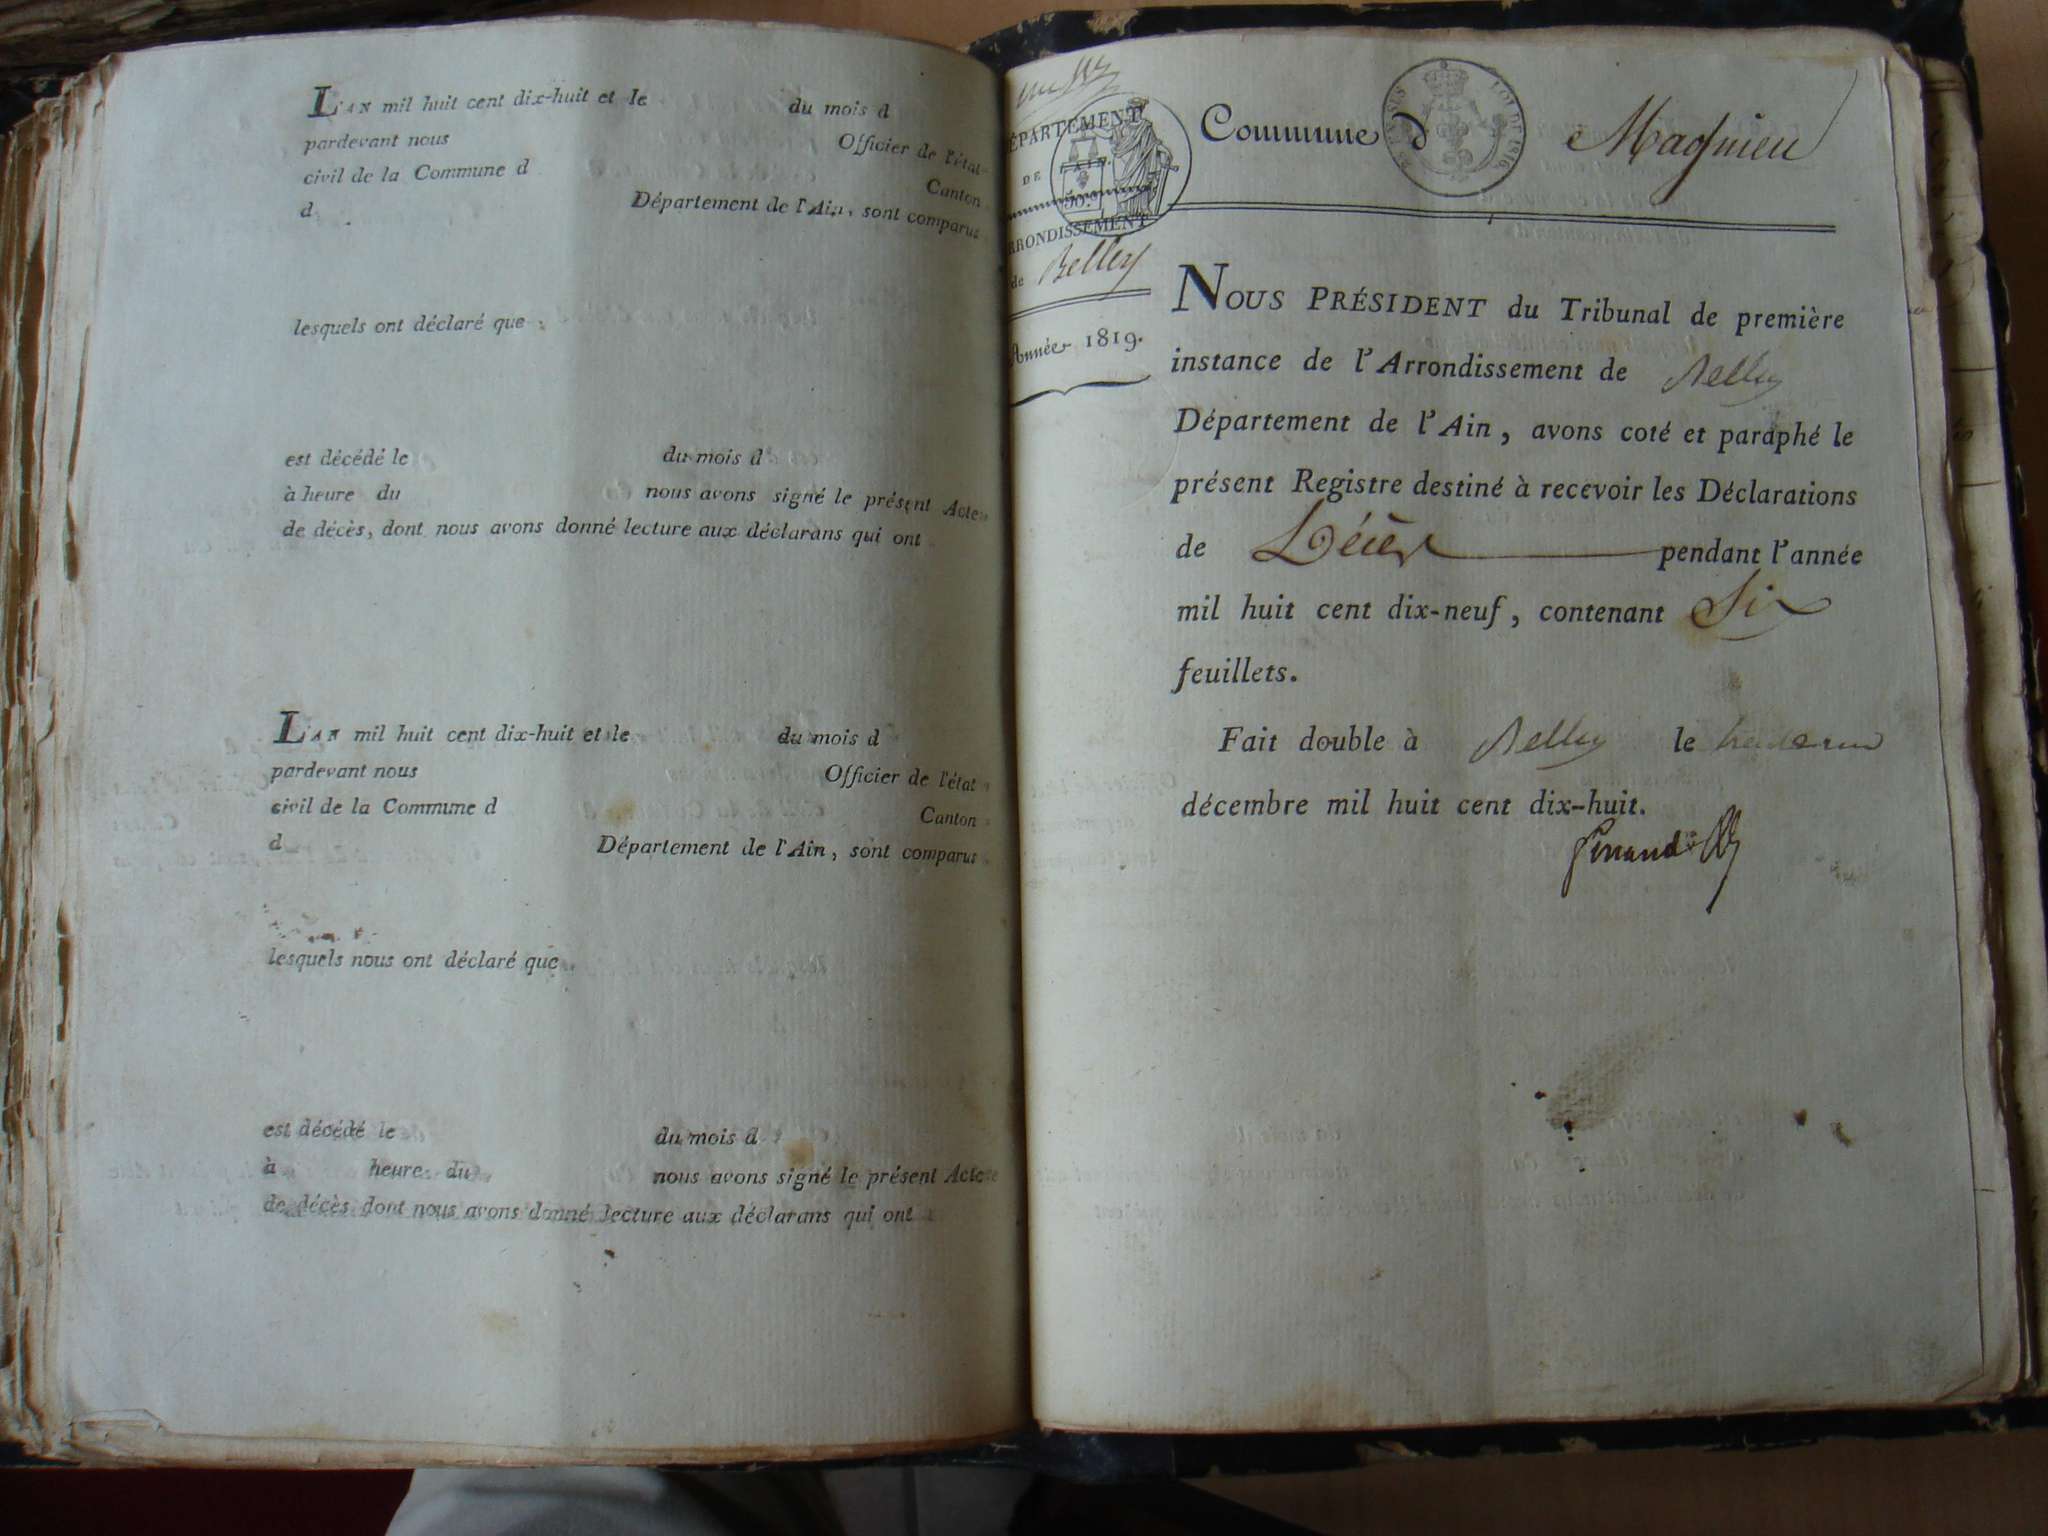 L'AN mil huit cent dix-huit et le du mois d
pardevant nous Officier de l'état-
civil de la Commune d Canton
d Département de l'Ain, sont comparus
lesquels ont déclaré que
est décédé le du mois d
à heure du nous avons signé le présent Acte
de décès, dont nous avons donné lecture aux déclarans qui ont
L'AN mil huit cent dix-huit et le du mois d
pardevant nous Officier de l'état
civil de la Commune d Canton
d Département de l'Ain, sont comparus
lesquels nous ont déclaré que
est décédé le du mois d
à heure du nous avons signé le présent Acte
de décès dont nous avons donné lecture aux déclarans qui ont
DÉPARTEMENT
DE
L'AIN.
50.c
ARRONDISSEMENT
de Belley
Année 1819.
Commune d Magnieu
LOI DE 1816
NOUS PRÉSIDENT du Tribunal de première
instance de l'Arrondissement de Belley
Département de l'Ain, avons coté et paraphé le
présent Registre destiné à recevoir les Déclarations
de Décès pendant l'année
mil huit cent dix-neuf, contenant Six
feuillets.
Fait double à Belley le trente un
décembre mil huit cent dix-huit.